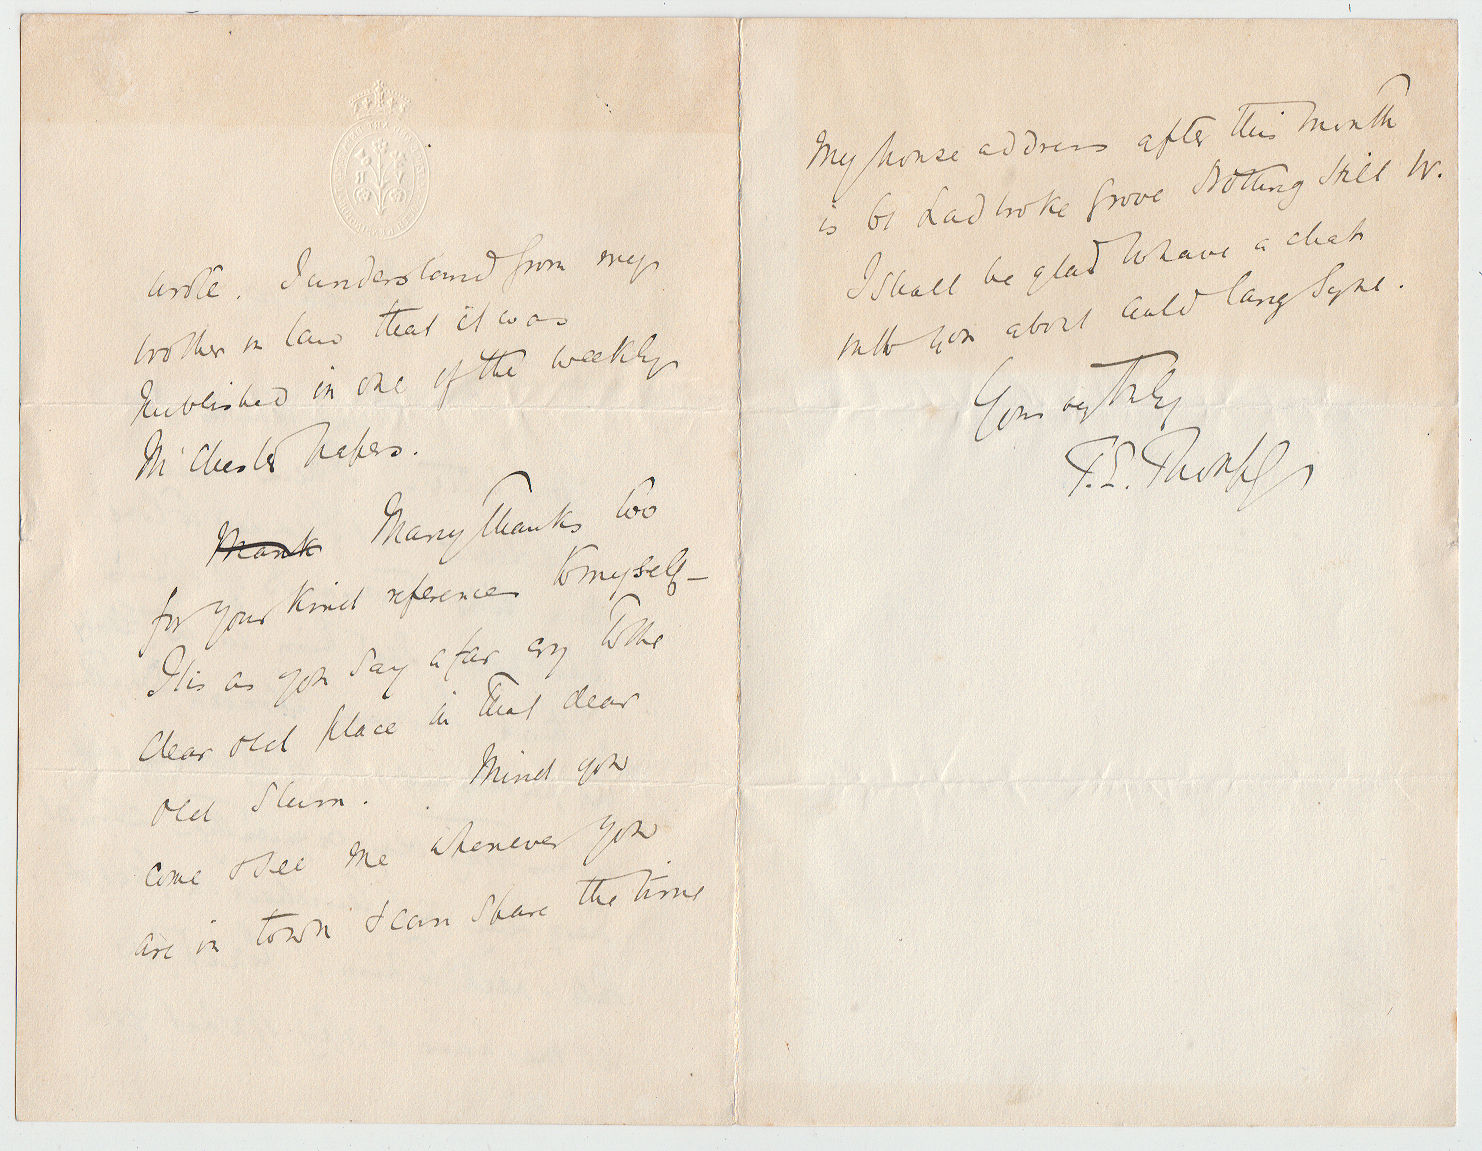 wrote. I understand from my
brother in law that it was
published in one of the weekly
M'Chester papers.
Mank Many thanks too
for your kind references to myself –
It is as you say a far cry to the
dear old place in that dear
old slum. Mind you
come & see me whenever you
are in town & can spare the time
My house address after this month
is 61 Ladbroke Grove Notting Hill W.
I shall be glad to have a chat
with you about Auld lang Syne.
Yours very truly
T. E. Thorpe